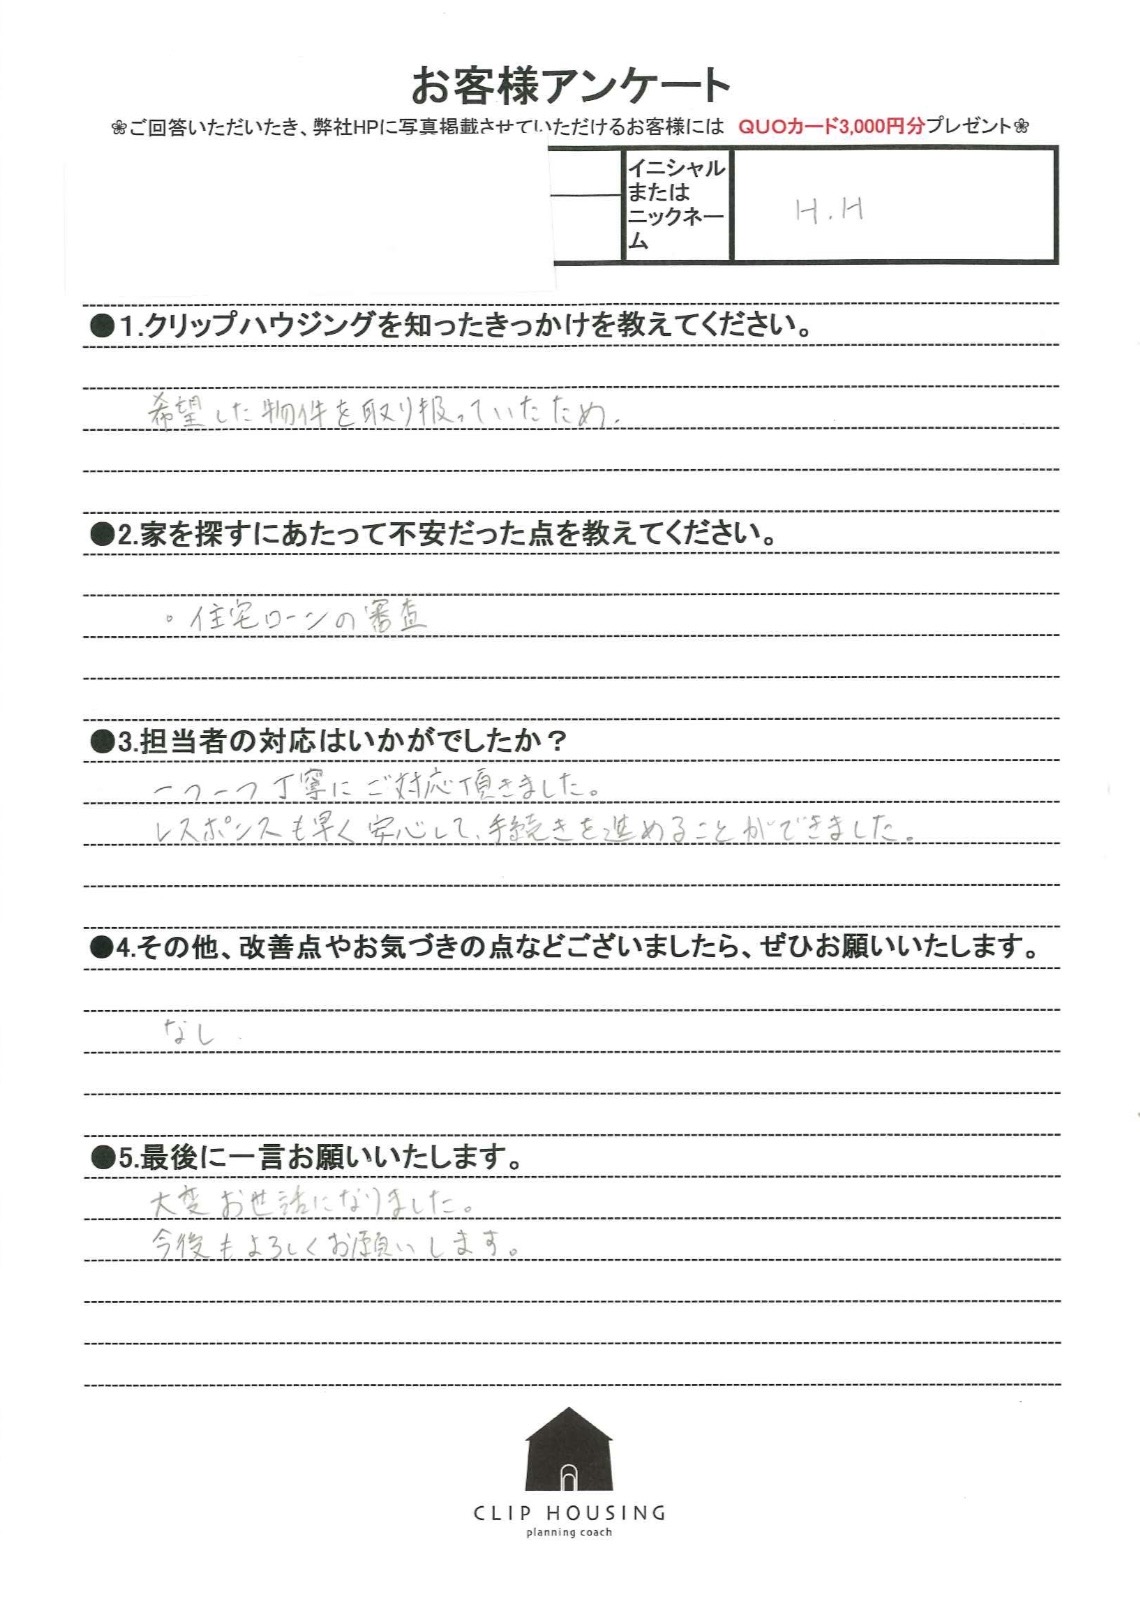 お客様アンケート
❀ご回答いただいたき、弊社HPに写真掲載させていただけるお客様には QUOカード3,000円分プレゼント❀
イニシャル
または
ニックネー
ム
H.H
●1.クリップハウジングを知ったきっかけを教えてください。
希望した物件を取り扱っていたため.
●2.家を探すにあたって不安だった点を教えてください。
。住宅ローンの審査
●3.担当者の対応はいかがでしたか？
一つ一つ丁寧にご対応頂きました。
レスポンスも早く安心して、手続きを進めることができました。
●4.その他、改善点やお気づきの点などございましたら、ぜひお願いいたします。
なし.
●5.最後に一言お願いいたします。
大変お世話になりました。
今後もよろしくお願いします。
CLIP HOUSING
planning coach